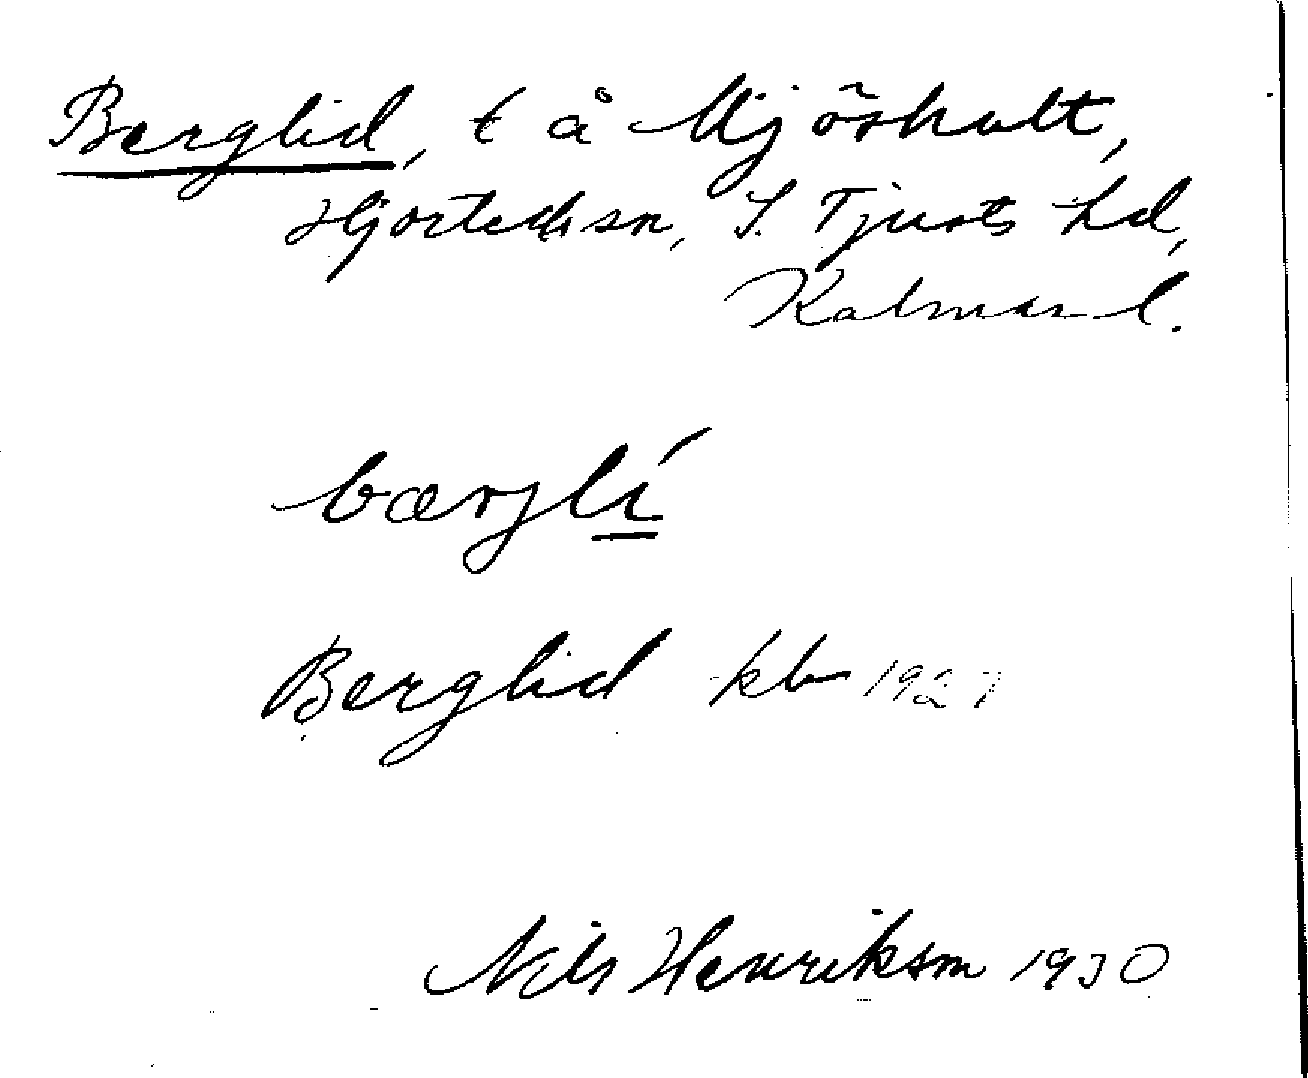 Berglid, t å Mjöshult,
Hjorteds sn, S. Tjusts hd,
Kalmar l.
bærjlí
Berglid kb 1927
Nils Henrikson 1930